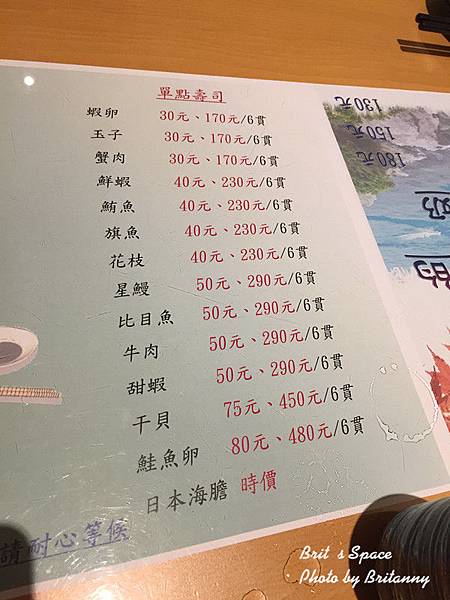 單點壽司
蝦卵 30元、170元/6貫
玉子 30元、170元/6貫
蟹肉 30元、170元/6貫
鮮蝦 40元、230元/6貫
鮪魚 40元、230元/6貫
旗魚 40元、230元/6貫
花枝 40元、230元/6貫
星鰻 50元、290元/6貫
比目魚 50元、290元/6貫
牛肉 50元、290元/6貫
甜蝦 50元、290元/6貫
干貝 75元、450元/6貫
鮭魚卵 80元、480元/6貫
日本海膽 時價
請耐心等候
130元
150元
180元
Brit's Space
Photo by Britanny